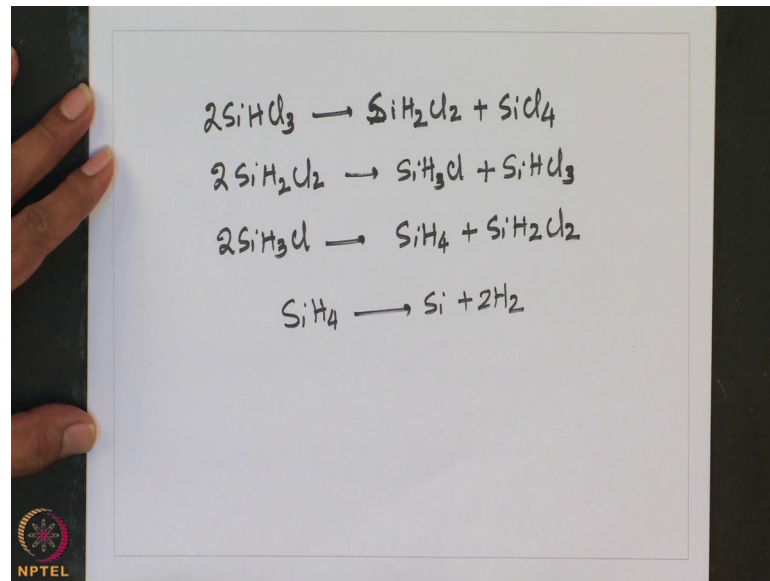 2SiHCl3 → SiH2Cl2 + SiCl4
2SiH2Cl2 → SiH3Cl + SiHCl3
2SiH3Cl → SiH4 + SiH2Cl2
SiH4 → Si + 2H2
NPTEL